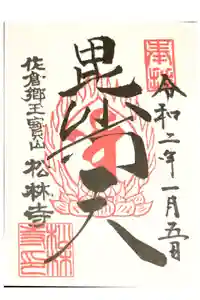 奉拝
令和二年一月五日
毘沙門天
佐倉郷玉寶山
松林寺